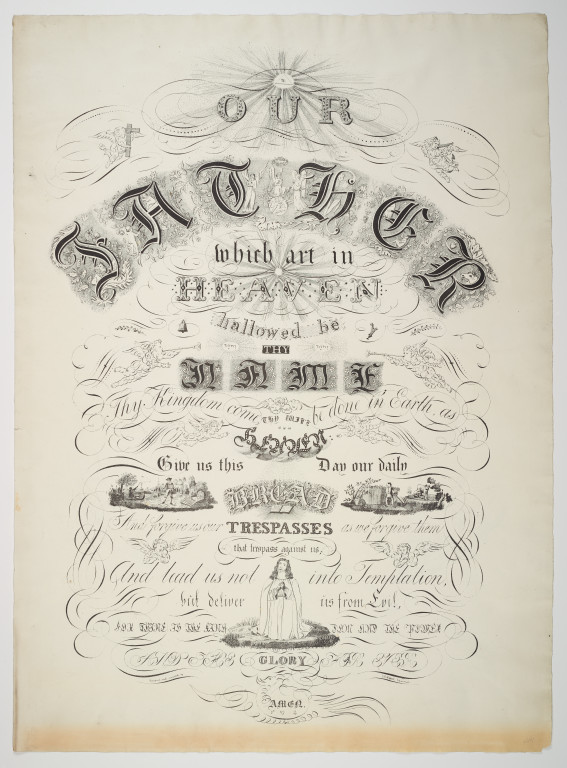 OUR
FATHER
which art in
HEAVEN
hallowed be
THY
NAME
Thy Kingdom come
THY WILL
be done in Earth as
HEAVEN
Give us this Day our daily
BREAD
And forgive us our TRESPASSES as we forgive them
that trespass against us,
And lead us not into Temptation,
but deliver us from Evil,
FOR THINE IS THE KINGDOM AND THE POWER
AND THE GLORY
AMEN.